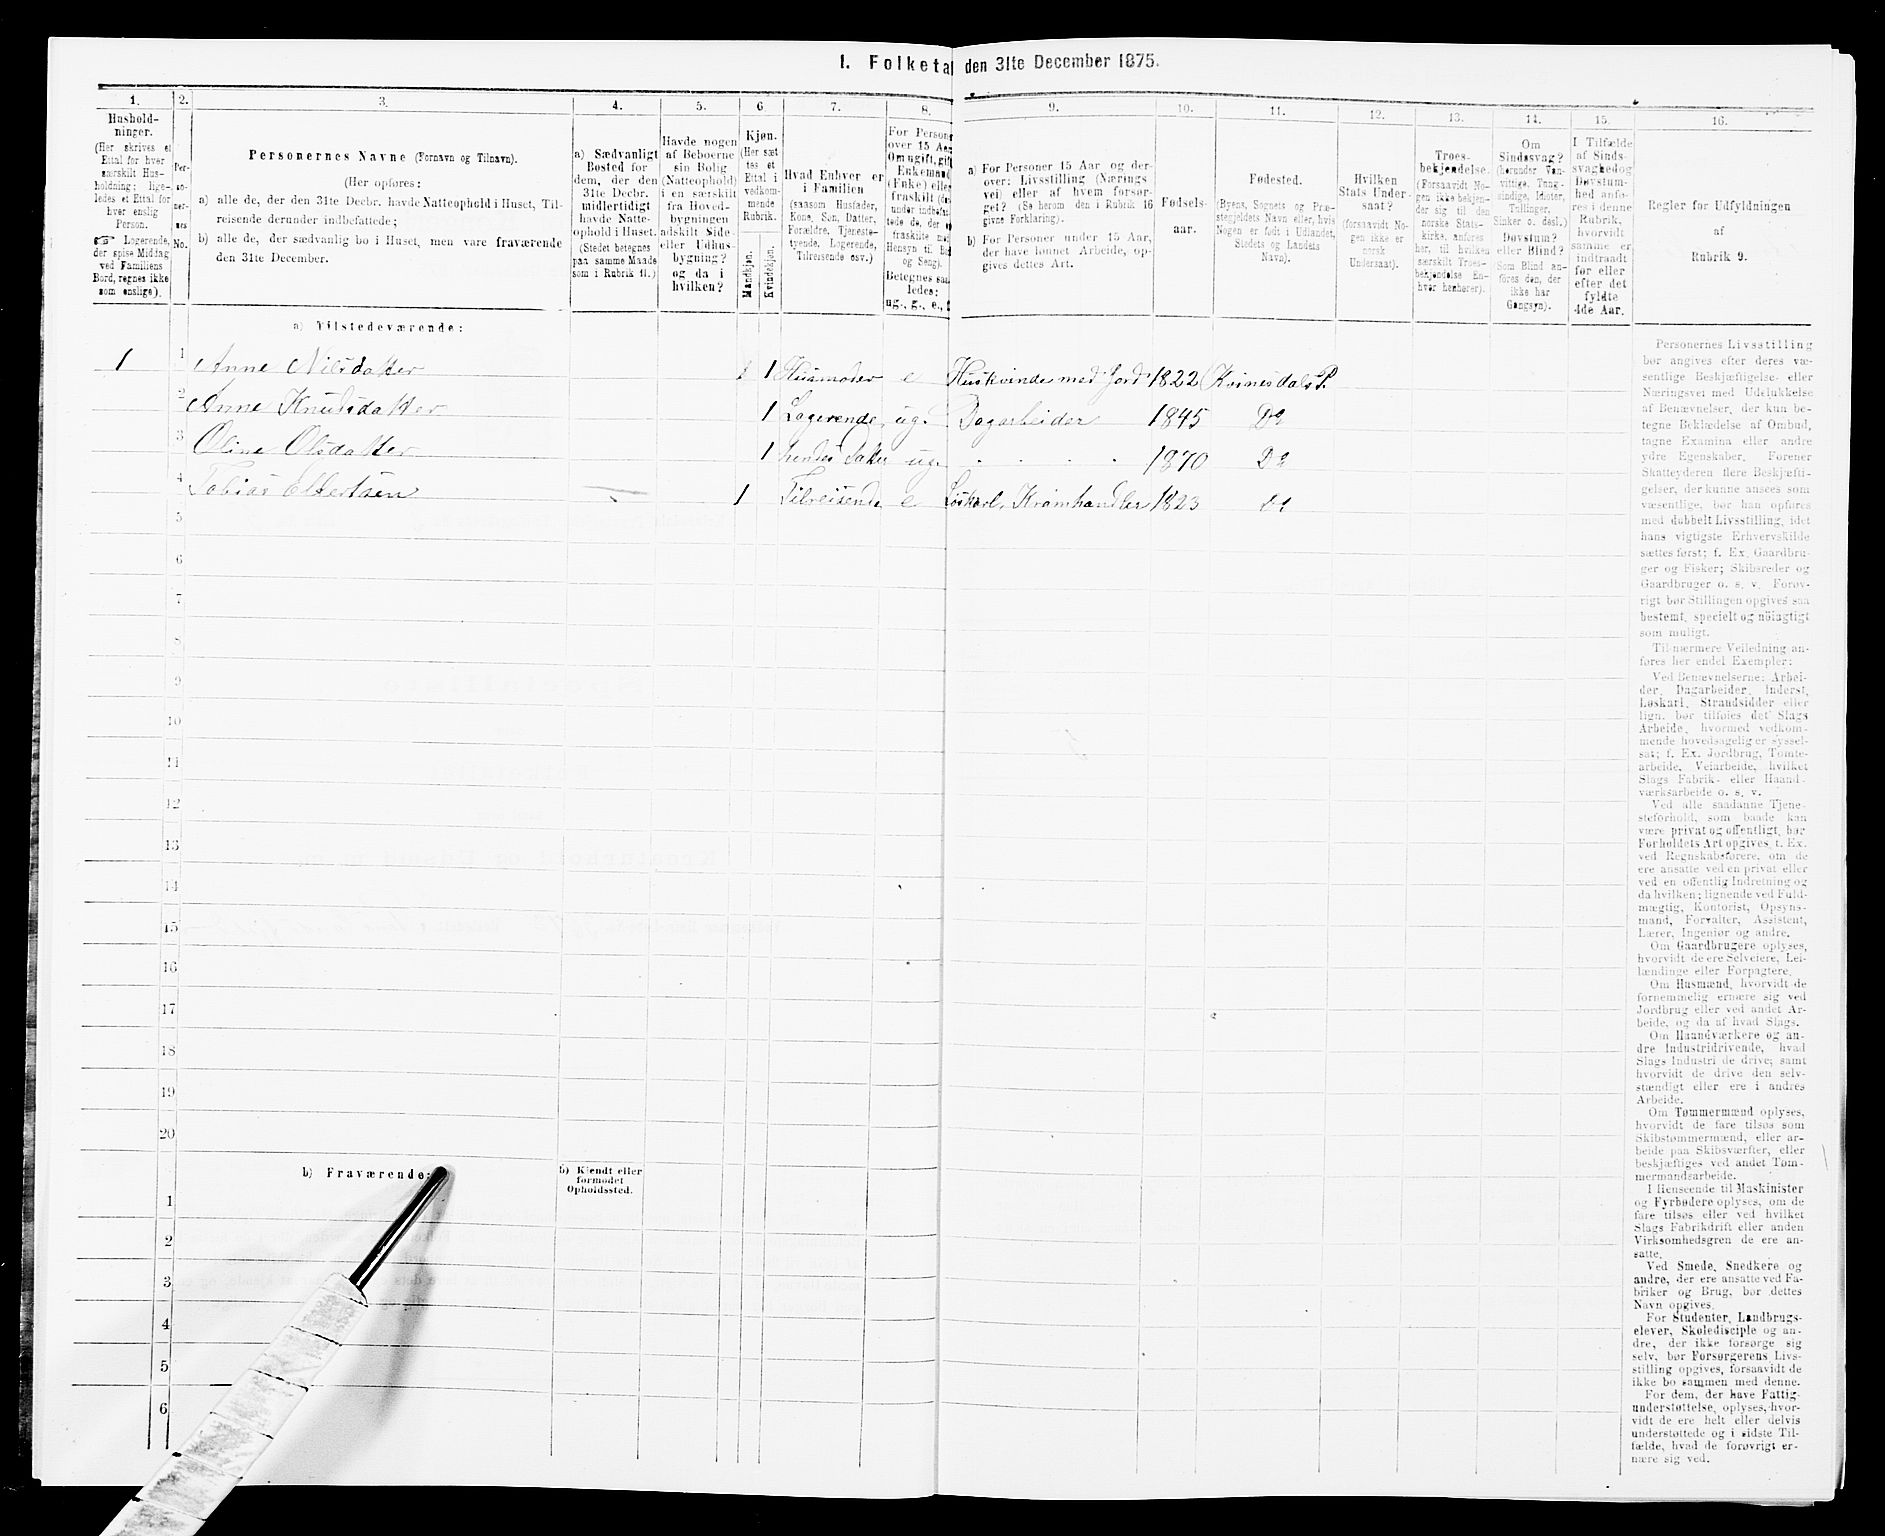 1. Folketa den 31te December 1875.
1.
Hushold-
ninger.
(Her skrives et
Ettal for hver
særskilt Hus-
holdning; lige-
ledes et Ettal for
hver enslig
Person.
☞ Logerende,
der spise Middag
ved Familiens
Bord, regnes ikke
som enslige).
2.
Per-
so-
ner-
nes
No.
3.
Personernes Navne (Fornavn og Tilnavn).
(Her opføres:
a) alle de, der den 31te Decbr. havde Natteophold i Huset, Til-
reisende derunder indbefattede;
b) alle de, der sædvanlig bo i Huset, men vare fraværende
den 31te December.
4.
a) Sædvanligt
Bosted for
dem, der den
31te Decbr.
midlertidigt
havde Natte-
ophold i Huset.
(Stedet betegnes
paa samme Maade
som i Rubrik 11.)
5.
Havde nogen
af Beboerne
sin Bolig
(Natteophold)
i en særskilt
fra Hoved-
bygningen
adskilt Side-
eller Udhus-
bygning?
og da i
hvilken?
6.
Kjøn.
(Her sæt-
tes et
Ettal i
vedkom-
mende
Rubrik.
Mandkjøn.
Kvindekjøn.
7.
Hvad Enhver er
i Familien
(saasom Husfader,
Kone, Søn, Datter,
Forældre, Tjeneste-
tyende, Logerende,
Tilreisende osv.)
8.
For Person
over 15 Aar
Om ugift, gift
Enkemand
(Enke) eller
fraskilt (der-
under indbefat-
tede de, der
fraskilte med
Hensyn til Bord
og Seng).
Betegnes saa
ledes:
ug., g., e., f.
9.
a) For Personer 15 Aar og der-
over: Livsstilling (Nærings
vei) eller af hvem forsør-
get? (Se herom den i Rubrik 16
givne Forklaring).
b) For Personer under 15 Aar,
der have lønnet Arbeide, op-
gives dettes Art.
10.
Fødsels-
aar.
11.
Fødested.
(Byens, Sognets og Præ-
stegjeldets Navn eller, hvis
Nogen er født i Udlandet,
Stedets og Landets
Navn).
12.
Hvilken
Stats Under-
saat?
(forsaavidt No-
gen ikke er
norsk
Undersaat).
13.
Troes-
bekjendelse.
(Forsaavidt No-
gen ikke bekjen-
der sig til den
norske Stats-
kirke, anføres
her, til hvilken
særskilt Troes-
bekjendelse En-
hver henhører).
14.
Om
Sindssvag?
(herunder Van-
vittige, Tung-
sindige, Idioter,
Tullinger,
Sinker o. desl.)
Døvstum?
eller Blind?
Som Blind an-
føres den, der
ikke har
Gangsyn).
15.
I Tilfælde
af Sinds-
svaghed og
Døvstum-
hed anfø-
res i denne
Rubrik,
hvorvidt
samme er
indtraadt
før eller
efter det
fyldte
4de Aar.
16.
Regler for Udfyldningen
af
Rubrik 9.
a) Tilstedeværende:
1 1 Anne Nilsdatter 1 Husmoder e Huskvinde med Jord 1822 Kvinesdals P.
2 Anne Knudsdatter 1 Logerende ug. Dagarbeider 1845 Do
3 Oline Olsdatter 1 hendes Datter ug. 1870 Do
4 Tobias Elbertsen 1 Tilreisende e Løskarl, Kramhandler 1823 Do
5
6
7
8
9
10
11
12
13
14
15
16
17
18
19
20
b) Fraværende:
b) Kjendt eller
formodet
Opholdssted.
1
2
3
4
5
6
Personernes Livsstilling
bør angives efter deres væ-
sentlige Beskjæftigelse eller
Næringsvei med Udelukkelse
af Benævnelser, der kun be-
tegne Beklædelse af Ombud,
tagne Examina eller andre
ydre Egenskaber. Forener
Skatteyderen flere Beskjæfti-
gelser, der kunne ansees som
væsentlige, bør han opføres
med dobbelt Livsstilling, idet
hans vigtigste Erhvervskilde
sættes først; f. Ex. Gaardbru-
ger og Fisker; Skibsreder og
Gaardbruger o. s. v. Forøv-
rigt bør Stillingen opgives saa
bestemt, specielt og nöiagtigt
som muligt.
Til nærmere Veiledning an-
føres her endel Exempler:
Ved Benævnelserne: Arbei-
der, Dagarbeider, Inderst,
Løskarl, Strandsidder eller
lign. bør tilføies det Slags
Arbeide, hvormed vedkom-
mende hovedsagelig er syssel-
sat; f. Ex. Jordbrug, Tomte-
arbeide, Veiarbeide, hvilket
Slags Fabrik- eller Haand-
værksarbeide o. s. v.
Ved alle saadanne Tjene-
steforhold, som baade kan
være privat og offentligt, bør
Forholdets Art opgives, f. Ex.
ved Regnskabsførere, om de
ere ansatte ved en privat eller
ved en offentlig Indretning og
da hvilken; lignende ved Fuld-
mægtig, Kontorist, Opsyns-
mand, Forvalter, Assistent,
Lærer, Ingeniør og andre.
Om Gaardbrugere oplyses,
hvorvidt de ere Selveiere, Lei-
lændinge eller Forpagtere.
Om Husmænd, hvorvidt de
fornemmelig ernære sig ved
Jordbrug eller ved andet Ar-
beide, og da af hvad Slags.
Om Haandværkere og an-
dre Industridrivende, hvad
Slags Industri de drive; samt
hvorvidt de drive den selv-
stændigt eller ere i andres
Arbeide.
Om Tømmermænd oplyses,
hvorvidt de fare tilsøs som
Skibstømmermænd, eller ar-
beide paa Skibsværfter, eller
beskjæftiges ved andet Tøm-
mermandsarbeide.
I Henseende til Maskinister
og Fyrbødere oplyses, om de
fare tilsøs eller ved hvilket
Slags Fabrikdrift eller anden
Virksomhedsgren de ere an-
satte.
Ved Smede, Snedkere og
andre, der ere ansatte ved Fa-
briker og Brug, bør dettes
Navn opgives.
For Studenter, Landbrugs-
elever, Skoledisciple og an-
dre, der ikke forsørge sig
selv, bør Forsørgerens Livs-
stilling opgives, forsaavidt de
ikke bo sammen med denne.
For dem, der have Fattig-
understøttelse, oplyses, hvor-
vidt de ere helt eller delvis
understøttede og i sidste Til-
fælde, hvad de forøvrigt er-
nære sig ved.